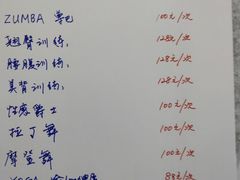 ZUMBA 尊巴 100元/次
翘臀训练: 128元/次
腰腹训练: 128元/次
美背训练: 128元/次
性感爵士 100元/次
拉丁舞 100元/次
摩登舞 100元/次
88元/次